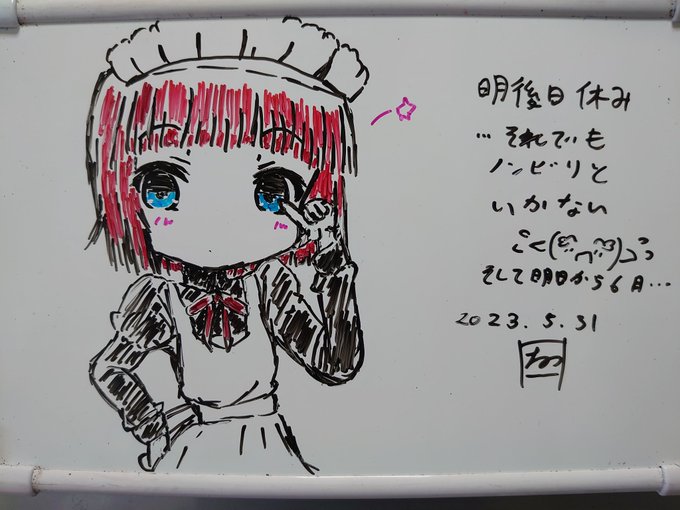 明後日休み
…それでも
ノンビリと
いかない
そして明日から6月…
2023.5.31